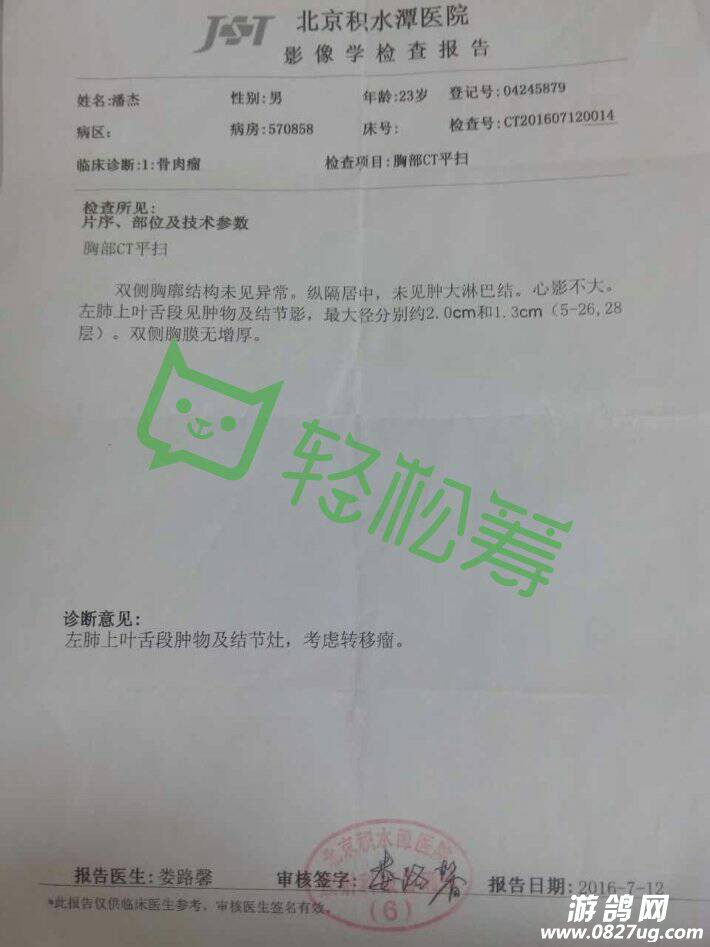 JST 北京积水潭医院
影像学检查报告
姓名:潘杰 性别:男 年龄:23岁 登记号:04245879
病区: 病房:570858 床号: 检查号:CT201607120014
临床诊断:1:骨肉瘤 检查项目:胸部CT平扫
检查所见:
片序、部位及技术参数
胸部CT平扫
双侧胸廓结构未见异常。纵隔居中，未见肿大淋巴结。心影不大。
左肺上叶舌段见肿物及结节影，最大径分别约2.0cm和1.3cm（5-26,28
层）。双侧胸膜无增厚。
轻松筹
诊断意见:
左肺上叶舌段肿物及结节灶，考虑转移瘤。
北京积水潭医院
(6)
报告医生:娄路馨 审核签字: 娄路馨 报告日期:2016-7-12
*此报告仅供临床医生参考，审核医生签名有效。
游鸽网
www.0827ug.com